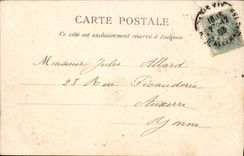 CARTE POSTALE
Ce côté est exclusivement réservé à l'adresse
Monsieur Jules Allard
23 Rue Ficanderie
Auxerre
Yonne